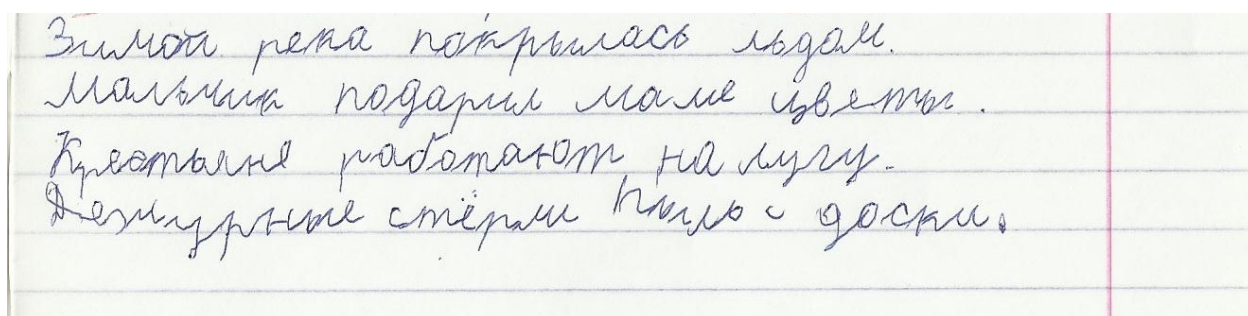 Зимой река покрылась льдом.
Мальчик подарил маме цветы.
Крестьяне работают на лугу.
Дежурные стёрли пыль с доски.